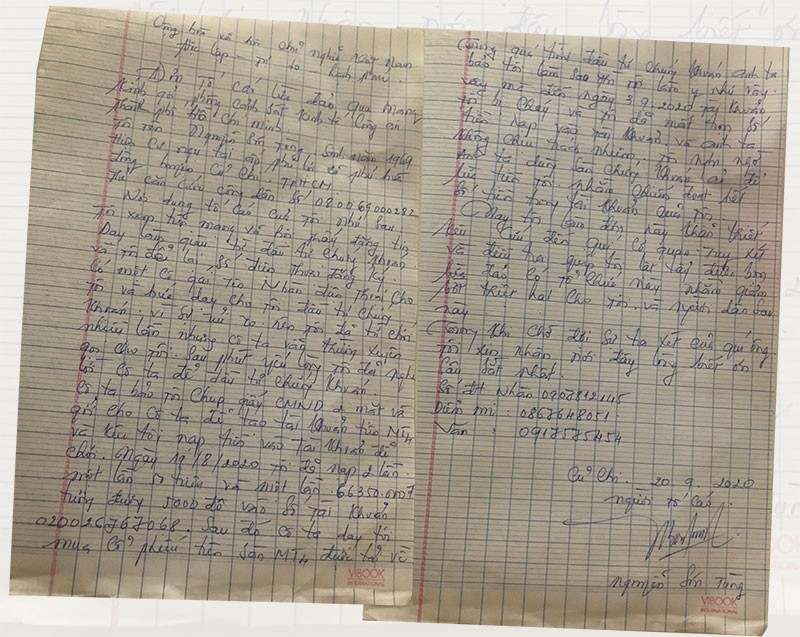 Cộng hòa xã hội chủ nghĩa Việt Nam
Độc lập - tự do - hạnh phúc
Đơn tố cáo lừa đảo qua mạng
Kính gởi phòng cảnh sát kinh tế công an
thành phố Hồ Chí Minh
Tôi tên Nguyễn Sơn Tùng Sinh năm 1969
Hiện cư ngụ tại ấp phú lợi xã phú hòa
đông huyện Củ Chi TPHCM
Thẻ căn cước công dân số 080069000282
Nội dung tố cáo của tôi như sau
Tôi xem trên mạng và tôi thấy đăng tin
Dạy làm giàu từ đầu tư chứng khoán
và tôi để lại số điện thoại đăng ký
Có một cô gái tên Nhàn điện thoại cho
tôi và dạy cho tôi đầu tư chứng
khoán. vì sợ rủi ro nên tôi đã từ chối
nhiều lần nhưng cô ta vẫn thường xuyên
gọi cho tôi. Sau phút yếu lòng tôi đã nghe
lời cô ta để đầu tư chứng khoán.
cô ta bảo tôi chụp giấy CMND 2 mặt và
gởi cho cô ta để tạo tài khoản trên MT4
và kêu tôi nạp tiền vào tài khoản để
chơi. ngày 19/8/2020 tôi đã nạp 2 lần
một lần 51 triệu và một lần 66350.000
tương đương 5000 đô vào số tài khoản
020026767068. Sau đó cô ta dạy tôi
mua cổ phiếu trên sàn MT4
Trong quá trình đầu tư chứng khoán anh ta
bảo tôi làm sao thì tôi làm y như vậy.
vậy mà đến ngày 3.9.2020 tài khoản
tôi bị cháy và tôi đã mất trọn số
tiền nạp vào tài khoản. và anh ta
không chịu trách nhiệm, tôi nghi ngờ
Anh ta dùng sàn chứng khoán ảo để
lừa tiền tôi nhằm chiếm đoạt hết
số tiền trong tài khoản của tôi.
Nay tôi làm đơn này khẩn thiết
kêu cứu đến quý cơ quan truy xét
và điều tra giúp tôi lại lấy được
lừa đảo có tổ chức này nhằm giảm
bớt thiệt hại cho tôi và người dân sau
này.
Trong khi chờ đợi sự tra xét của quý ông.
tôi xin nhận nơi đây lòng biết ơn
sâu sắt nhất.
Số ĐT Nhàn 0908812145
Diễm mi : 0867648051
Văn : 0917575454
Củ Chi. 20.9.2020
người tố cáo
Nguyễn Sơn Tùng
VIBOOK
INTERNATIONAL
VIBOOK
INTERNATIONAL